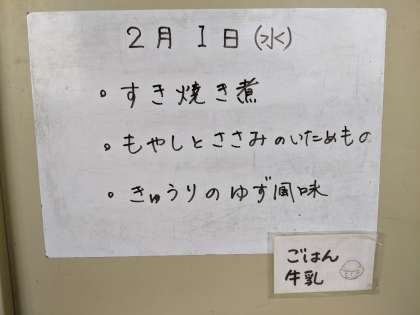 2月1日(水)
・すき焼き煮
・もやしとささみのいためもの
・きゅうりのゆず風味
ごはん
牛乳